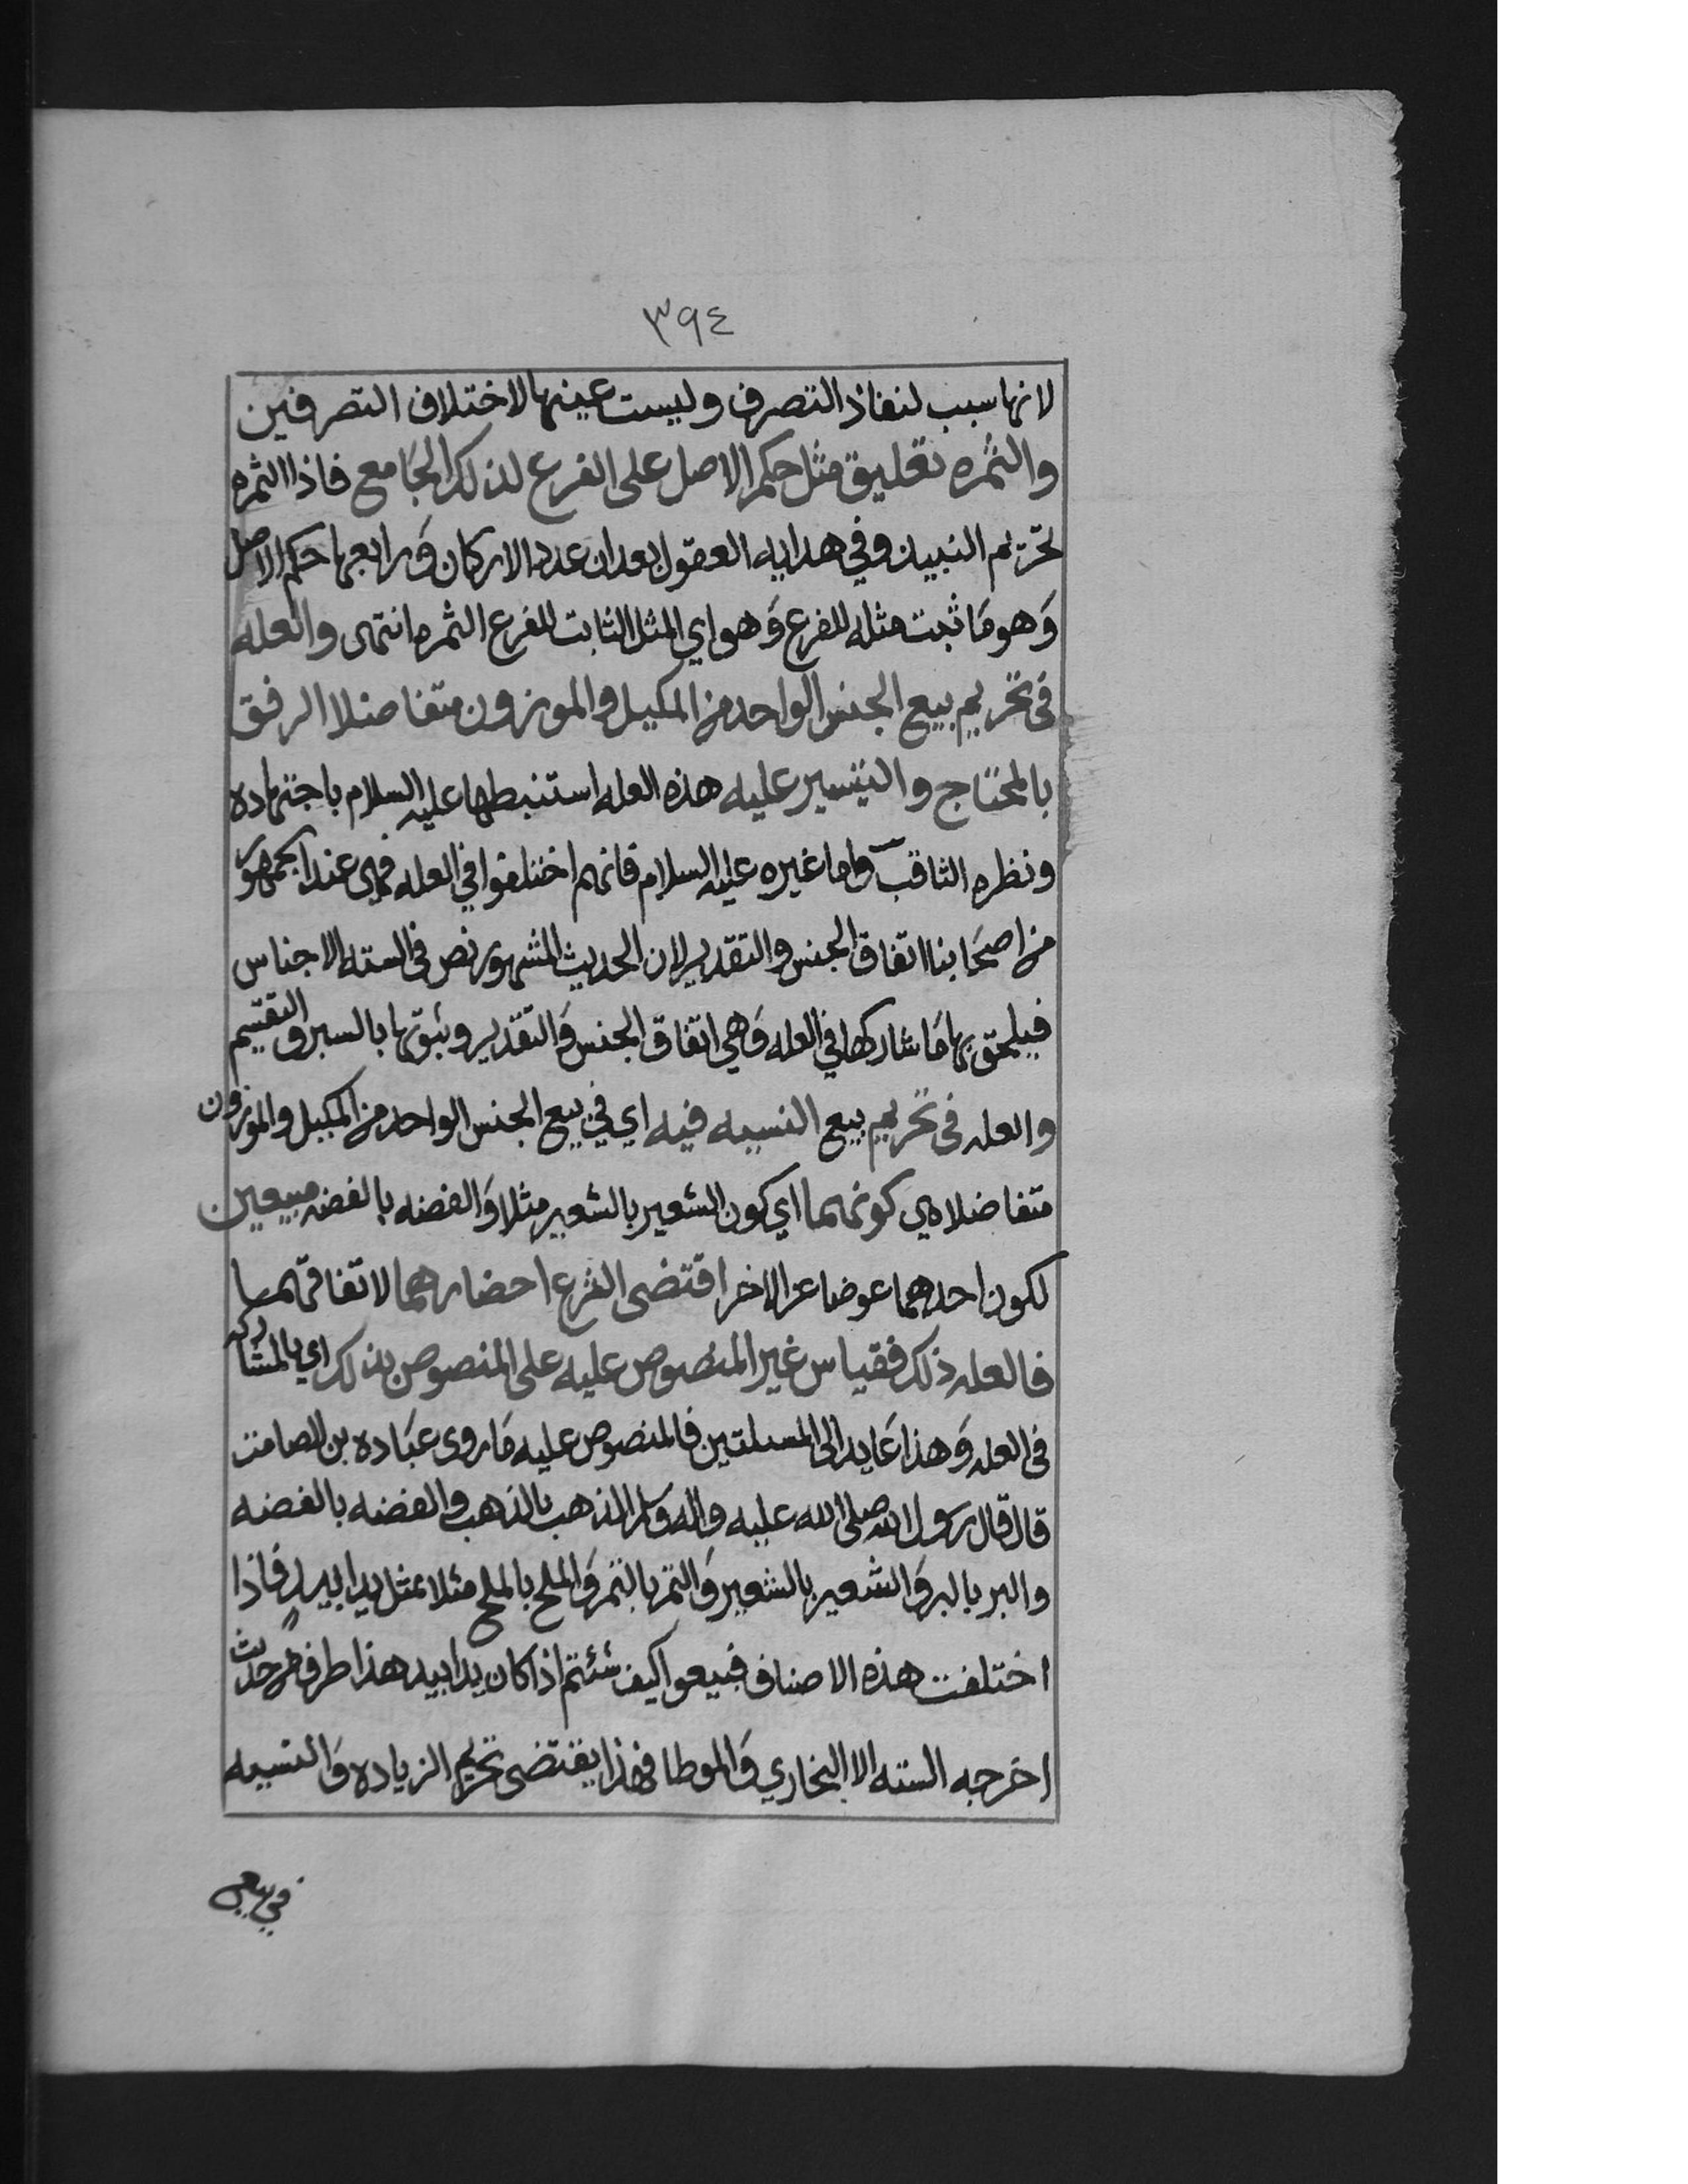 ٣٩٤
لانها سبب لنفاذ التصرف وليست عينها لاختلاف التصرفين
والثمره تعليق مثل حكم الاصل على الفرع لذلك الجامع فاذا الثمره
تحريم النبيذ وفي هدايه العقول بعد ان عدد الاركان ورابعها حكم الاصل
وهو ما ثبت مثله للفرع وهو اي المثل الثابت للفرع الثمره انتهى والعله
في تحريم بيع الجنس الواحد من المكيل والموزون متفاضلا الرفق
بالمحتاج والتيسير عليه هذه العله استنبطها عليه السلام باجتهاده
ونظره الثاقب واما غيره عليه السلام فانهم اختلفوا في العله فهي عند الجمهور
من اصحابنا اتفاق الجنس والتقدير لان الحديث المشهور نص في السته الاجناس
فيلحق بها ما شاركها في العله وهي اتفاق الجنس والتقدير وثبوتها بالسبر والتقسيم
والعله في تحريم بيع النسيه فيه اي في بيع الجنس الواحد من المكيل والموزون
متفاضلا هي كونهما اي كون الشعير بالشعير مثلا والفضه بالفضه مبيعين
لكون احدهما عوضا عن الاخر اقتضى الشرع احضارهما لاتفاقهما
فالعله ذلك فقياس غير المنصوص عليه على المنصوص بذلك اي بالمشاركه
في العله وهذا عايد الى المسلتين فالمنصوص عليه ما روى عباده بن الصامت
قال قال رسول الله صلى الله عليه واله وسلم الذهب بالذهب والفضه بالفضه
والبر بالبر والشعير بالشعير والتمر بالتمر والملح بالملح مثلا بمثل يدا بيد فاذا
اختلفت هذه الاصناف فبيعوا كيف شئتم اذا كان يدا بيد هذا طرف من حديث
اخرجه السته الا البخاري والموطا فهذا يقتضى تحريم الزياده والنسيه
في بيع